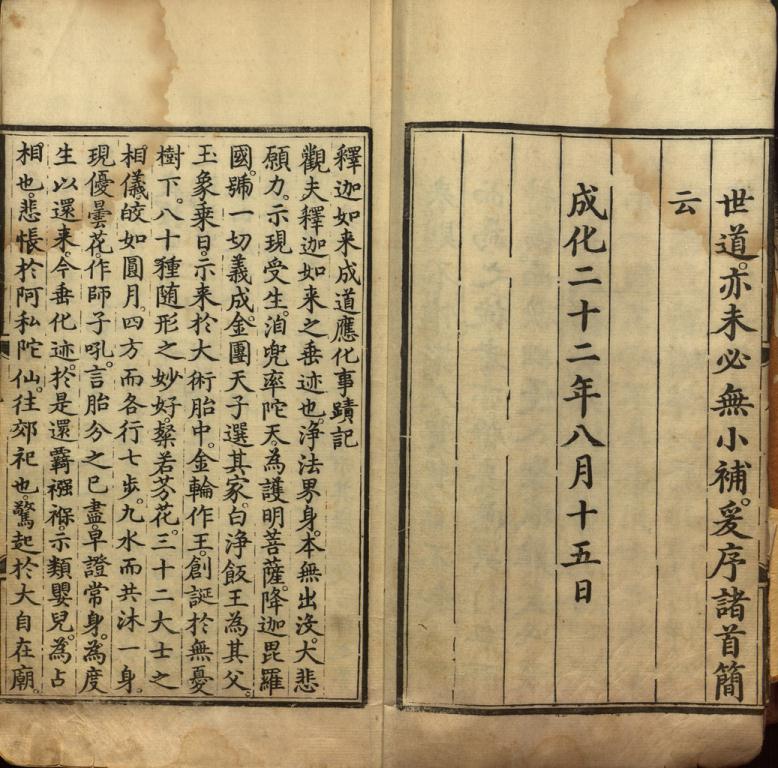 世道。亦未必無小補。爰序諸首簡
云
成化二十二年八月十五日
釋迦如来成道應化事蹟記
觀夫釋迦如来之垂迹也。浄法界身。本無出没。大悲
願力。示現受生。洎兜率陀天。為護明菩薩。降迦毘羅
國。號一切義成。金團天子選其家。白浄飯王為其父。
玉象乗日。示来於大術胎中。金輪作王。創誕於無憂
樹下。八十種随形之妙好。粲若芬花。三十二大士之
相儀。皎如圓月。四方而各行七歩。九水而共沐一身。
現優曇花。作師子吼。言胎分之已盡。早證常身。為度
生以還来。今垂化迹。於是還羇襁褓。示類嬰兒。為占
相也。悲悵於阿私陀仙。往郊祀也。驚起於大自在廟。